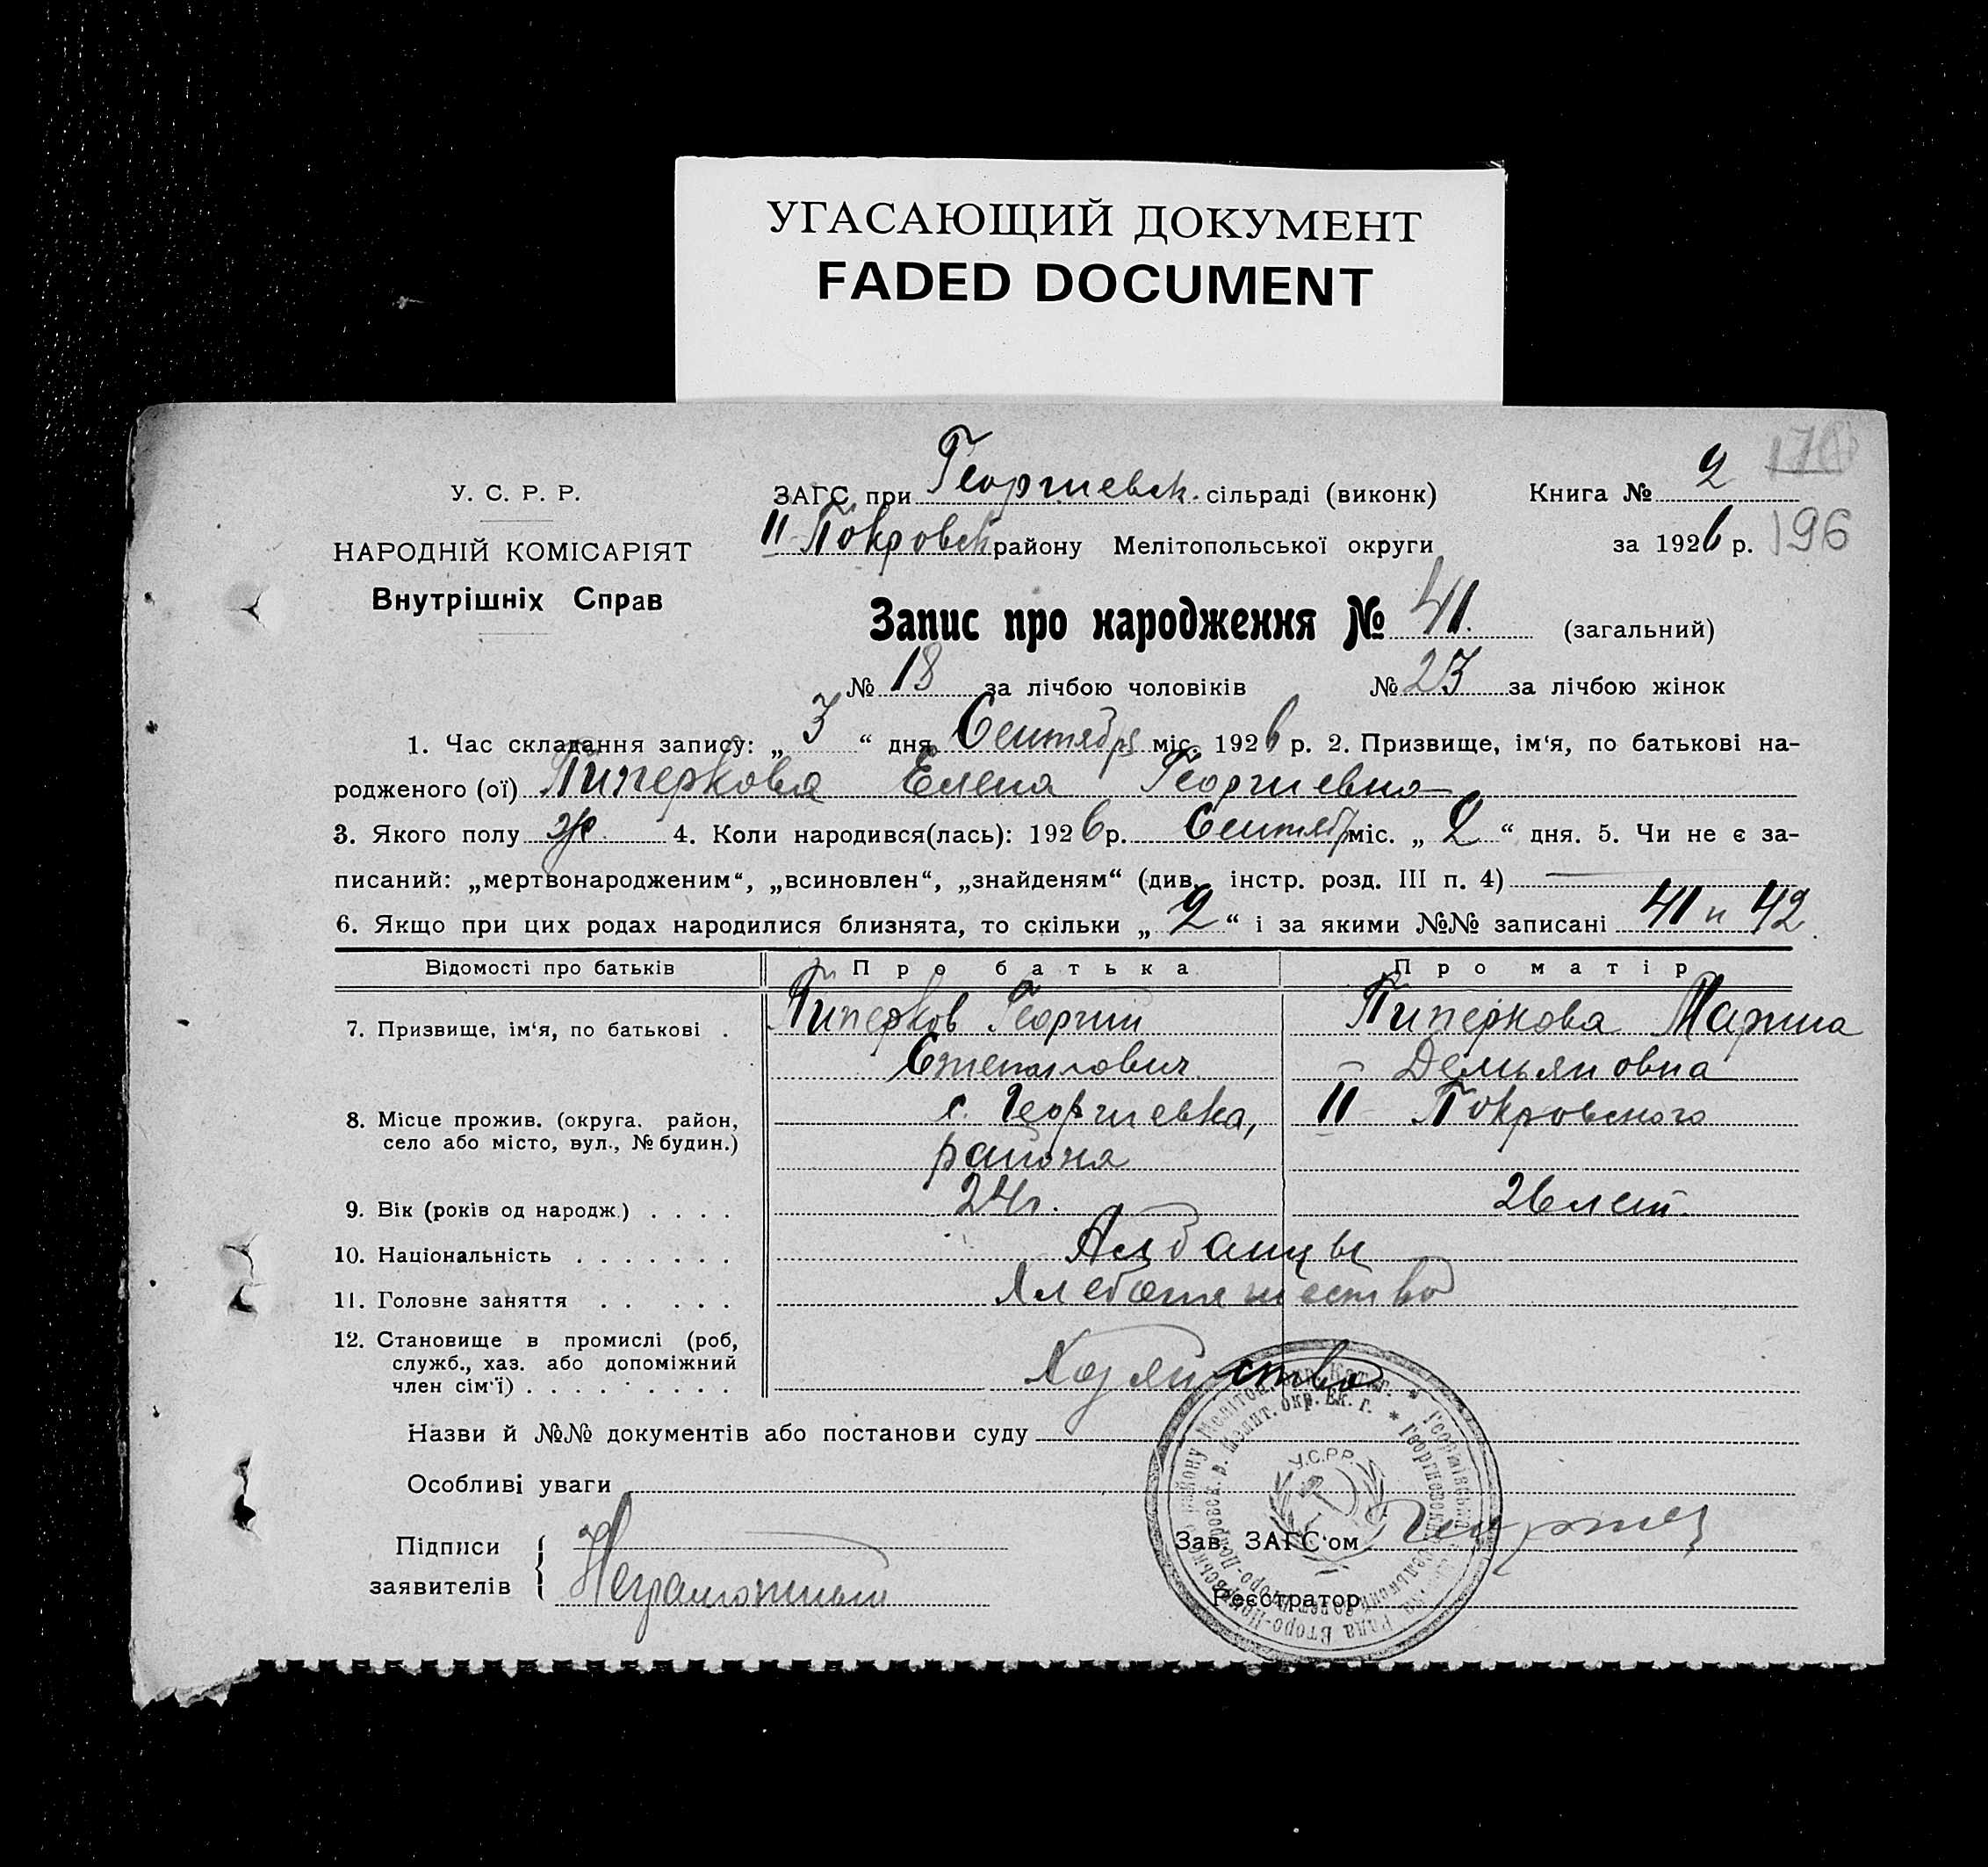 УГАСАЮЩИЙ ДОКУМЕНТ
FADED DOCUMENT
У. С. Р. Р.
НАРОДНІЙ КОМІСАРІЯТ
Внутрішніх Справ
ЗАГС при Георгиевск. сільраді (виконк)
II-Покровск району Мелітопольської округи
Книга № 2
за 1926 р. 196
Запис про народження № 41. (загальний)
№ 18 за лічбою чоловіків № 23 за лічбою жінок
1. Час складання запису: „ 3 “ дня Сентября міс. 1926 р. 2. Призвище, ім‘я, по батькові на-
родженого (ої) Пиперкова Елена Георгиевна
3. Якого полу ж. 4. Коли народився(лась): 1926 р. Сентяб міс. „ 2 “ дня. 5. Чи не є за-
писаний: „мертвонародженим“, „всиновлен“, „знайденям“ (див. інстр. розд. III п. 4)
6. Якщо при цих родах народилися близнята, то скільки „ 2 “ і за якими №№ записані 41 и 42.
Відомості про батьків Про батька Про матір
7. Призвище, ім‘я, по батькові . Пиперков Георгий Пиперкова Марина
Степанович Демьяновна
8. Місце прожив. (округа. район, с. Георгиевка, II Покровского
село або місто, вул., № будин.) района
9. Вік (років од народж.) . . . . 24 г. 26 лет.
10. Національність . . . . . . . Албанцы
11. Головне заняття . . . . . Хлебопашество
12. Становище в промислі (роб,
служб., хаз. або допоміжний
член сім‘ї) . . . . . . . . . Хозяйство
Назви й №№ документів або постанови суду
Особливі уваги
Підписи
заявителів Неграмотный
Зав. ЗАГС‘ом
Реєстратор
У.С.Р.Р.